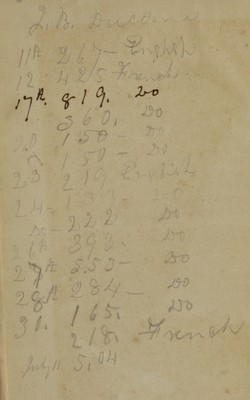 11th 267 - English
12 425 French.
17th. 819. Do
360. Do
20 150 - Do
150 - Do
23 219 English
24 -
Do - 222 Do
393. Do
27th 553 - Do
28th 284 - Do
31. 165. Do
218. French
July 11 5.04